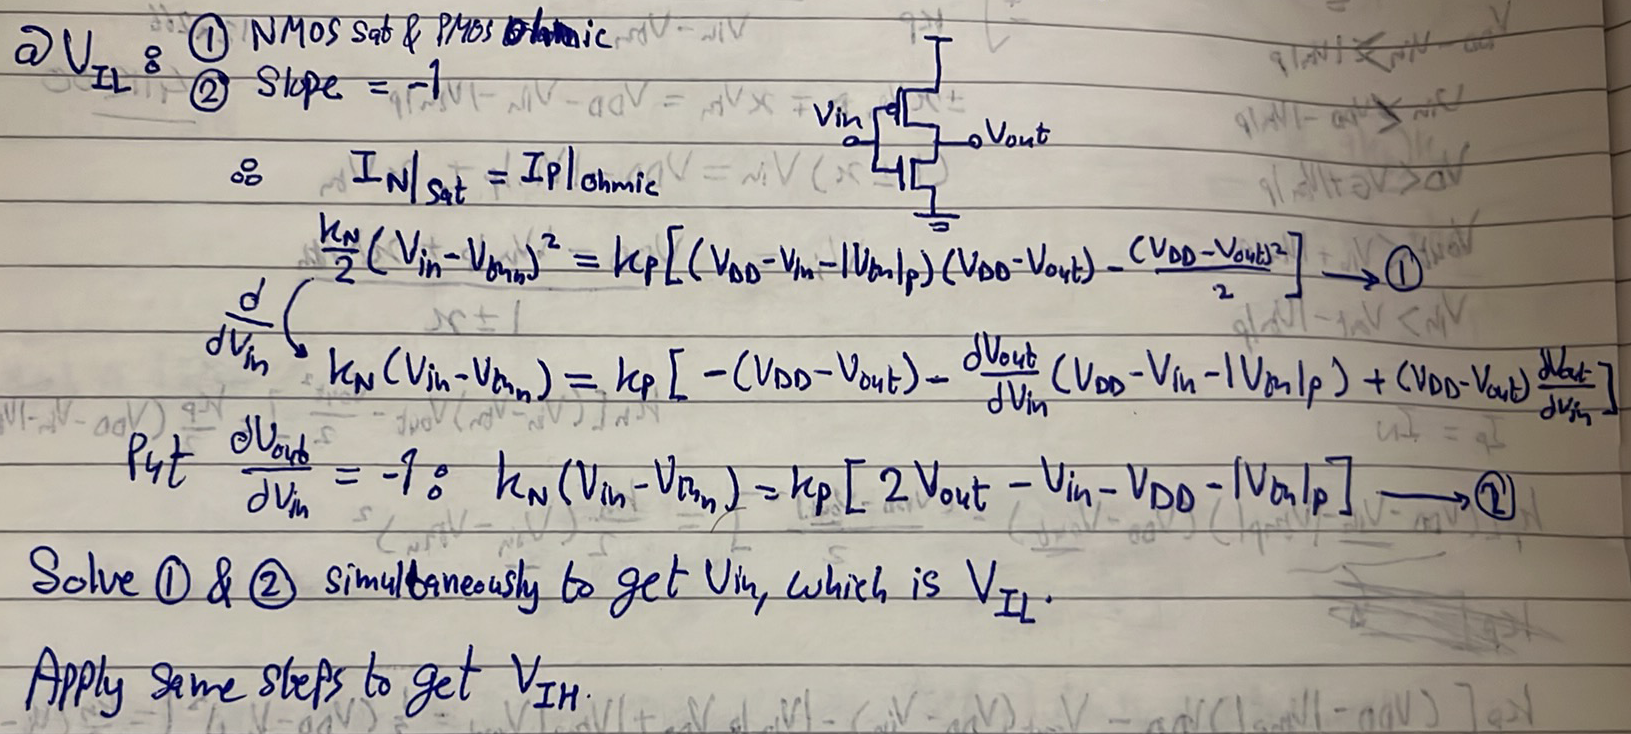 @ V_IL : ① NMOS Sat & PMOS Ohmic
② Slope = -1
Vin
Vout
∴ I_N|Sat = I_P|ohmic
k_N/2 (Vin - Vthn)² = kp [(VDD - Vin - |Vth|p)(VDD - Vout) - (VDD - Vout)²/2] → ①
d/dVin
k_N (Vin - Vthn) = kp [ -(VDD - Vout) - dVout/dVin (VDD - Vin - |Vth|p) + (VDD - Vout) dVout/dVin ]
Put dVout/dVin = -1 : k_N (Vin - Vthn) = kp [ 2Vout - Vin - VDD - |Vth|p ] → ②
Solve ① & ② simultaneously to get Vin, which is V_IL.
Apply same steps to get V_IH.